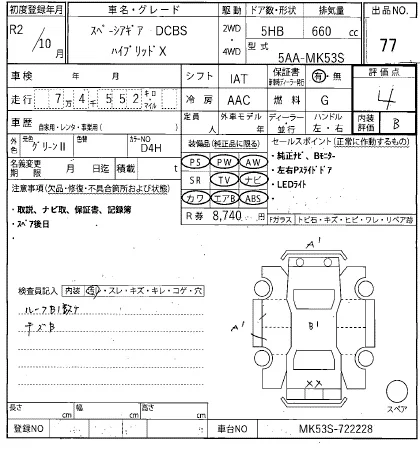 初度登録年月 車名・グレード 駆動 ドア数・形状 排気量 出品NO.
R2 / 10 月 スペーシアギア DCBS 2WD ・ 4WD 5HB 660 cc 77
ハイブリッドX 型式 5AA-MK53S
車検 年 月 シフト IAT 保証書 有・無 評価点
走行 7万4千552 キロ マイル 冷房 AAC 燃料 G 4
車歴 自家用・レンタ・事業用( ) 定員 人 外車モデル 年 ディーラー・並行 ハンドル 左・右 内装評価 B
外色 元色 グリーンII 色替 カラーNO D4H 装備品(純正品に限る) セールスポイント(正常に作動するもの)
名義変更期限 月 日迄 積載 t PS PW AW ・純正ナビ、Bモニター
注意事項(欠品・修復・不具合箇所および状態) SR TV ナビ ・左右Pスライドドア
・取説、ナビ取、保証書、記録簿 カワ エアB ABS ・LEDライト
・スペア後日 R券 8,740 円
Fガラス トビ石・キズ・ヒビ・ワレ・リペア跡
検査員記入 内装 汚・スレ・キズ・キレ・コゲ・穴
ルーフB1数ケ
チズB
A1
A1
B1
XX
スペア
長さ cm 幅 cm 高さ cm
登録NO 車台NO MK53S-722228